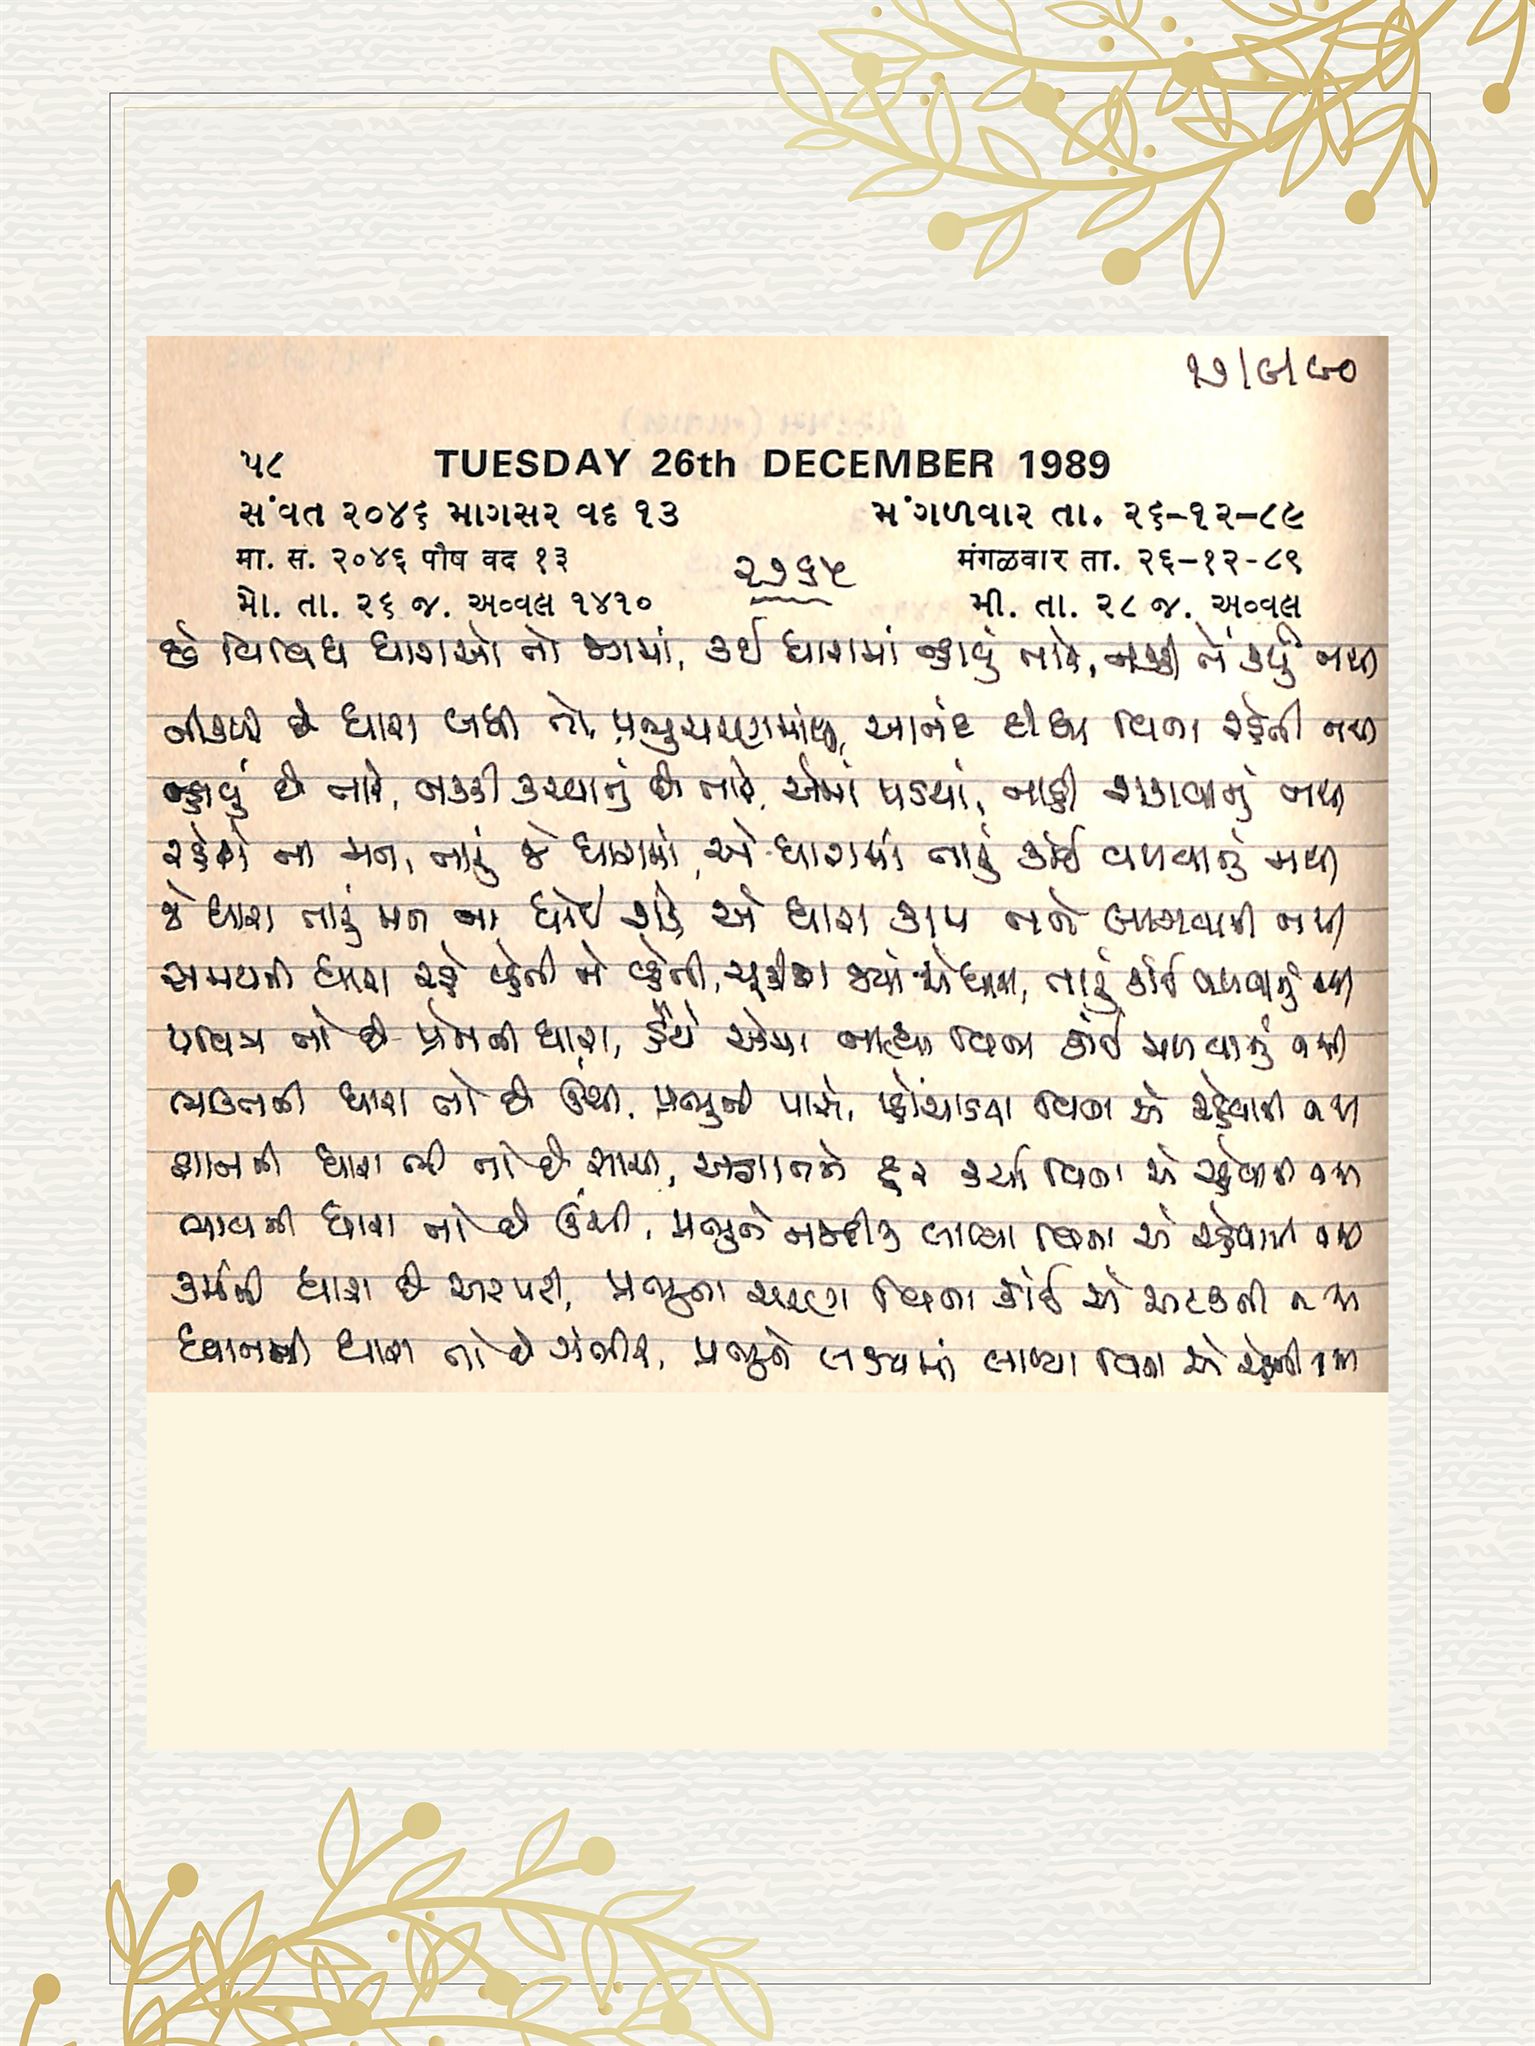 ૧૭/૯/૯૦
૫૮ TUESDAY 26th DECEMBER 1989
સંવત ૨૦૪૬ માગસર વદ ૧૩ મંગળવાર તા. ૨૬-૧૨-૮૯
मा. सं. २०४६ पौष वद १३ मंगळवार ता. २६-१२-८९
મો. તા. ૨૬ જ. અવ્વલ ૧૪૧૦ મી. તા. ૨૮ જ. અવ્વલ
૨૭૬૫
છે વિવિધ ધારાઓ તો જગમાં, કઈ ધારામાં ન્હાવું તારે, નક્કી તેં કર્યું નથી
નીકળી છે ધારા બધી તો, પ્રભુચરણમાંથી, આનંદ દીધા વિના રહેતી નથી
ન્હાવું છે તારે, નક્કી કરવાનું છે તારે, એમાં પડયાં, નાહી શકાવાનું નથી
રહેશે ના મન, તારું જે ધારામાં, એ ધારામાં તારું કાંઈ વળવાનું નથી
જે ધારા તારું મન ના ધોઈ શકે એ ધારા કામ તને લાગવાની નથી
સમયની ધારા રહે વ્હેતી ને વ્હેતી, ચૂકીશ જ્યાં એ ધારા, તારું કાંઈ વળવાનું નથી
પવિત્ર તો છે પ્રેમની ધારા, હૈયે એમાં નાહ્યા વિના કાંઈ મળવાનું નથી
ભક્તની ધારા તો છે ઊંચી, પ્રભુની પાસે, પ્હોંચાડયા વિના એ રહેવાની નથી
જ્ઞાનની ધારા ભી તો છે સાચી, અજ્ઞાનને દૂર કર્યા વિના એ રહેવાની નથી
ભાવની ધારા તો છે ઊંચી, પ્રભુને નજદીક લાવ્યા વિના એ રહેવાની નથી
કર્મની ધારા છે અટપટી, પ્રભુના ચરણ વિના કાંઈ એ અટકતી નથી
ધ્યાનની ધારા તો છે ગંભીર, પ્રભુને લક્ષ્યમાં લાવ્યા વિના એ રહેતી નથી